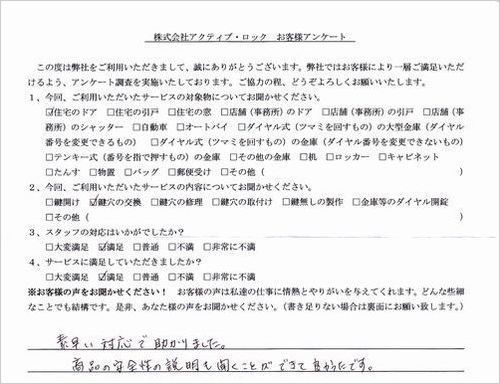 株式会社アクティブ・ロック　お客様アンケート
この度は弊社をご利用いただきまして、誠にありがとうございます。弊社ではお客様により一層ご満足いただ
けるよう、アンケート調査を実施いたしております。ご協力の程、どうぞよろしくお願いいたします。
1、今回、ご利用いただいたサービスの対象物についてお聞かせください。
☑住宅のドア　□住宅の引戸　□住宅の窓　□店舗（事務所）のドア　□店舗（事務所）の引戸　□店舗（事
務所）のシャッター　□自動車　□オートバイ　□ダイヤル式（ツマミを回すもの）の大型金庫（ダイヤル
番号を変更できるもの）　□ダイヤル式（ツマミを回すもの）の金庫（ダイヤル番号を変更できないもの）
□テンキー式（番号を指で押すもの）の金庫　□その他の金庫　□机　□ロッカー　□キャビネット
□たんす　□物置　□バッグ　□郵便受け　□その他（　）
2、今回、ご利用いただいたサービスの内容についてお聞かせください。
□鍵開け　☑鍵穴の交換　□鍵穴の修理　□鍵穴の取付け　□鍵無しの製作　□金庫等のダイヤル開錠
□その他（　）
3、スタッフの対応はいかがでしたか？
□大変満足　☑満足　□普通　□不満　□非常に不満
4、サービスに満足していただきましたか？
□大変満足　☑満足　□普通　□不満　□非常に不満
※お客様の声をお聞かせください！　お客様の声は私達の仕事に情熱とやりがいを与えてくれます。どんな些細
なことでも結構です。是非、あなた様の声をお聞かせください。（書き足りない場合は裏面にお願い致します。）
素早い対応で助かりました。
商品の安全性の説明も聞くことができて良かったです。